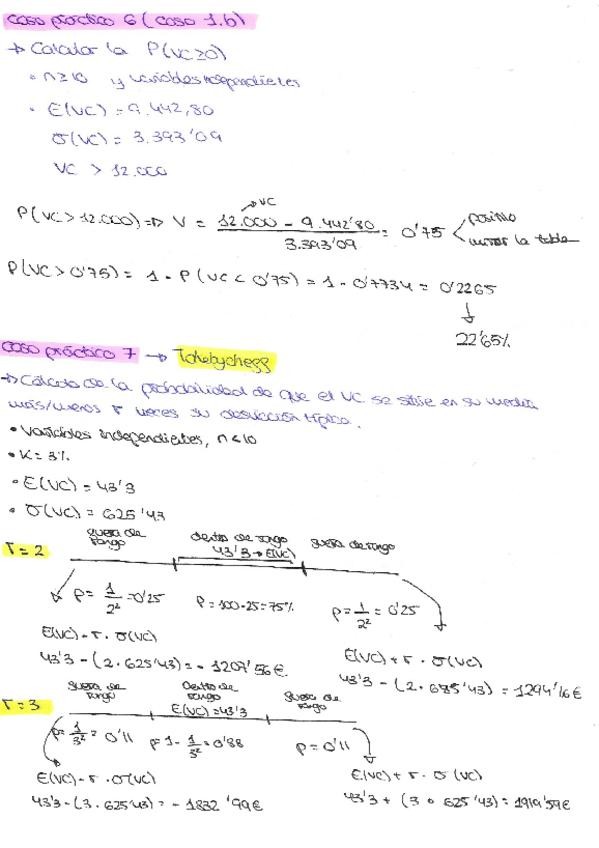 caso práctico 6 (caso 1.b)
→ Calcular la P(VC≥0)
• n≥10 y variables independientes
• E(VC) = 9.442,80
σ(VC) = 3.393'09
VC > 12.000
→ VC
P(VC>12.000) => V = 12.000 - 9.442'80 / 3.393'09 = 0'75 < positivo
mirar la tabla
P(VC > 0'75) = 1 - P(VC < 0'75) = 1 - 0'7734 = 0'2265
↓
22'65%
caso práctico 7 → Tchebycheff
→ Cálculo de la probabilidad de que el VC se sitúe en su media
más/menos r veces su desviación típica.
• Variables independientes, n<10
• K = 3%
• E(VC) = 43'3
• σ(VC) = 625'43
r = 2
fuera de rango
dentro de rango
43'3 → E(VC)
fuera de rango
P = 1/2² = 0'25
P = 100-25 = 75%
P = 1/2² = 0'25
E(VC) - r · σ(VC)
43'3 - (2 · 625'43) = - 1207'56 €.
E(VC) + r · σ(VC)
43'3 - (2 · 685'43) = 1294'16 €
r = 3
fuera de rango
Dentro de rango
E(VC) = 43'3
fuera de rango
P = 1/3² = 0'11
P = 1 - 1/3² = 0'88
P = 0'11
E(VC) - r · σ(VC)
43'3 - (3 · 625'43) = - 1832'99 €
E(VC) + r · σ(VC)
43'3 + (3 · 625'43) = 1919'59 €